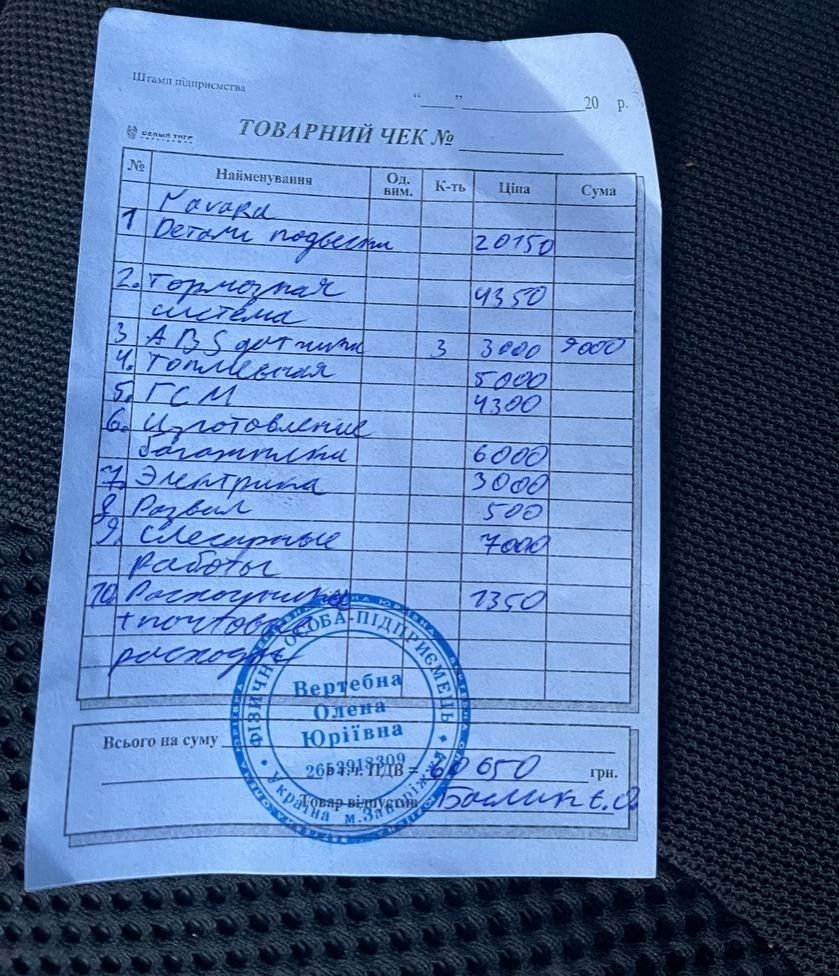 Штамп підприємства
“___” ____________20 р.
БЕЛЫЙ ТИГР
ТОВАРНИЙ ЧЕК № ________
№ Найменування Од. вим. К-ть Ціна Сума
Navara
1 Детали подвески 20150
2. Тормозная 4350
система
3 ABS датчики 3 3000 9000
4. Топливная 5000
5. ГСМ 4300
6. Изготовление
багажника 6000
7. Электрика 3000
8 Развал 500
9. Слесарные 7000
работы
10. Расходники 1350
+ почтовые
расходы
ФІЗИЧНА ОСОБА-ПІДПРИЄМЕЦЬ
Вертебна
Олена
Юріївна
2653918309
Україна м.Запоріжжя
Всього на суму
в т.ч. ПДВ = 60650 грн.
Товар відпустив